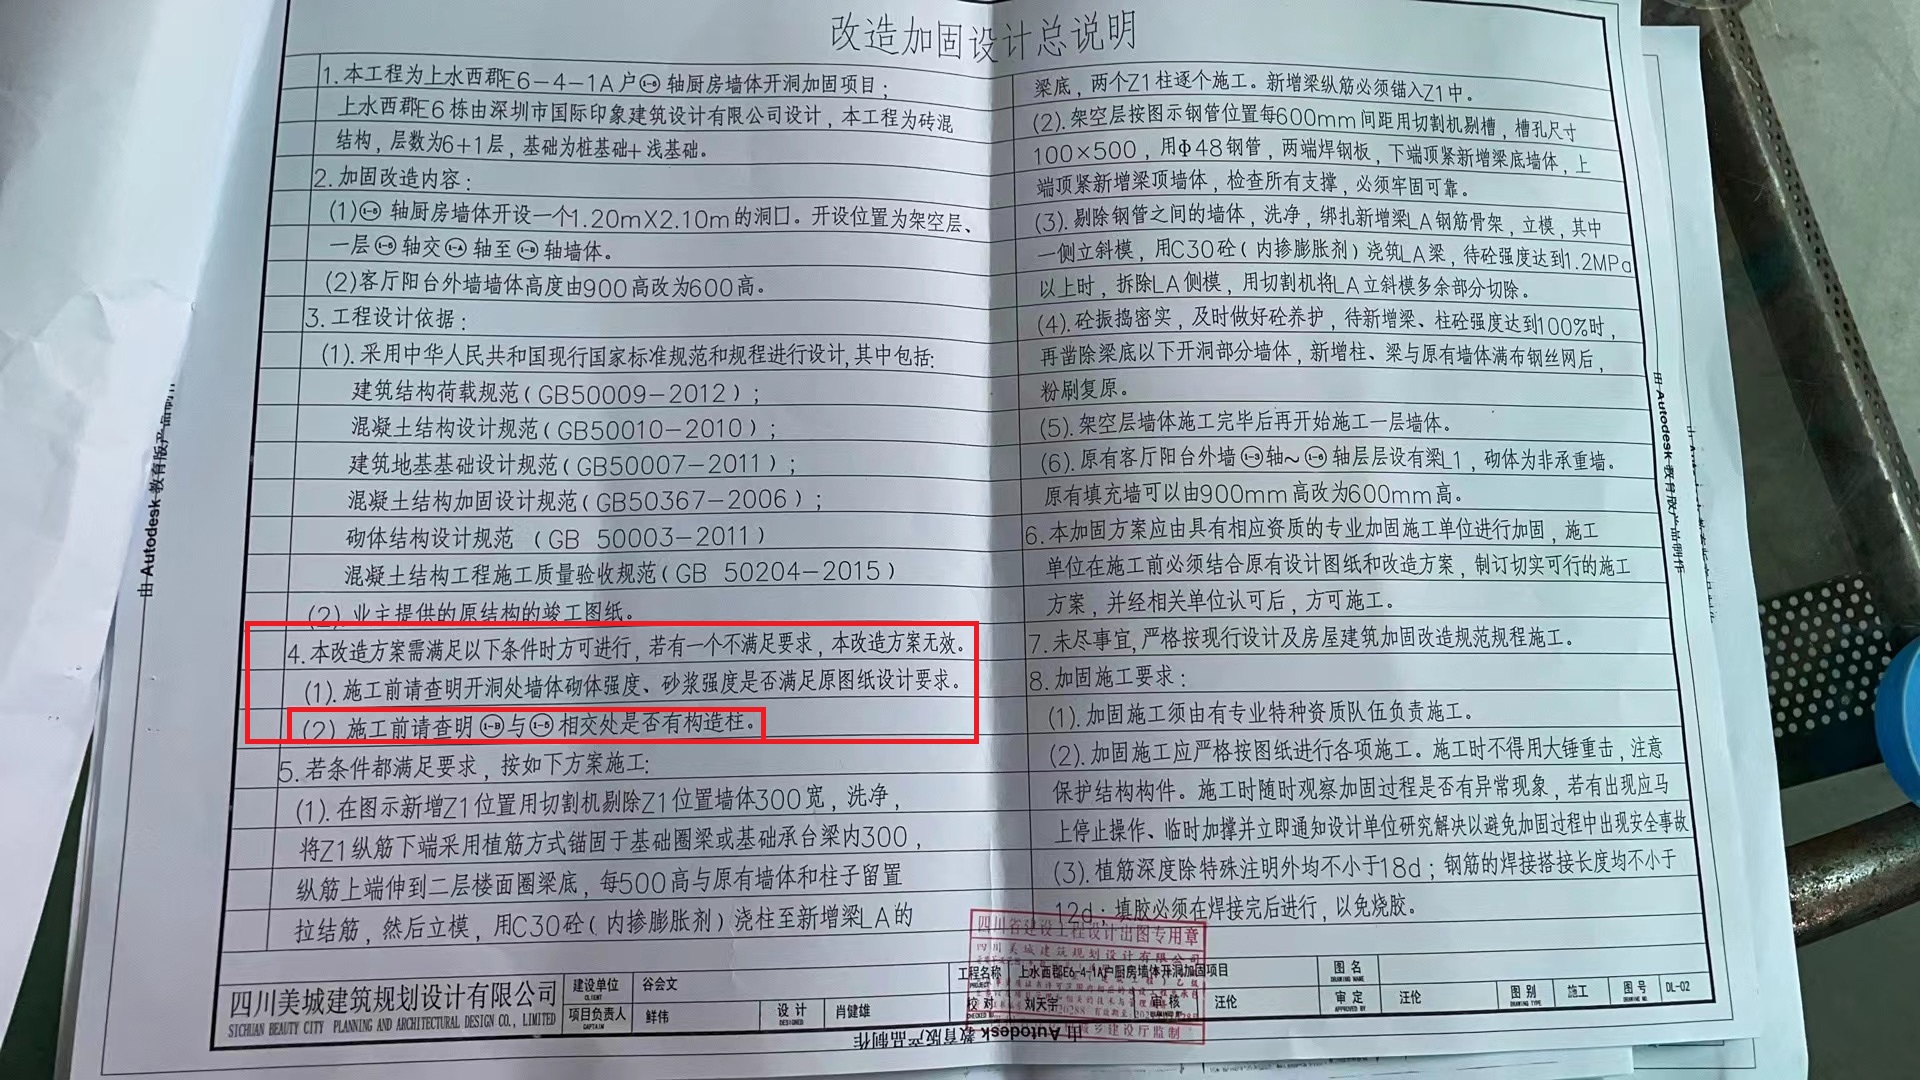 改造加固设计总说明
1.本工程为上水西郡E6-4-1A户1-5轴厨房墙体开洞加固项目;
上水西郡E6栋由深圳市国际印象建筑设计有限公司设计,本工程为砖混
结构,层数为6+1层,基础为桩基础+浅基础。
2.加固改造内容:
(1)1-5轴厨房墙体开设一个1.20mX2.10m的洞口。开设位置为架空层、
一层1-5轴交1-A轴至1-B轴墙体。
(2)客厅阳台外墙墙体高度由900高改为600高。
3.工程设计依据:
(1).采用中华人民共和国现行国家标准规范和规程进行设计,其中包括:
建筑结构荷载规范(GB50009-2012);
混凝土结构设计规范(GB50010-2010);
建筑地基基础设计规范(GB50007-2011);
混凝土结构加固设计规范(GB50367-2006);
砌体结构设计规范 (GB 50003-2011)
混凝土结构工程施工质量验收规范(GB 50204-2015)
(2).业主提供的原结构的竣工图纸。
4.本改造方案需满足以下条件时方可进行,若有一个不满足要求,本改造方案无效。
(1).施工前请查明开洞处墙体砌体强度、砂浆强度是否满足原图纸设计要求。
(2)施工前请查明1-B与1-5相交处是否有构造柱。
5.若条件都满足要求,按如下方案施工:
(1).在图示新增Z1位置用切割机剔除Z1位置墙体300宽,洗净,
将Z1纵筋下端采用植筋方式锚固于基础圈梁或基础承台梁内300,
纵筋上端伸到二层楼面圈梁底,每500高与原有墙体和柱子留置
拉结筋,然后立模,用C30砼(内掺膨胀剂)浇柱至新增梁LA的
梁底,两个Z1柱逐个施工。新增梁纵筋必须锚入Z1中。
(2).架空层按图示钢管位置每600mm间距用切割机剔槽,槽孔尺寸
100×500,用Φ48钢管,两端焊钢板,下端顶紧新增梁底墙体,上
端顶紧新增梁顶墙体,检查所有支撑,必须牢固可靠。
(3).剔除钢管之间的墙体,洗净,绑扎新增梁LA钢筋骨架,立模,其中
一侧立斜模,用C30砼(内掺膨胀剂)浇筑LA梁,待砼强度达到1.2MPa
以上时,拆除LA侧模,用切割机将LA立斜模多余部分切除。
(4).砼振捣密实,及时做好砼养护,待新增梁、柱砼强度达到100%时,
再凿除梁底以下开洞部分墙体,新增柱、梁与原有墙体满布钢丝网后,
粉刷复原。
(5).架空层墙体施工完毕后再开始施工一层墙体。
(6).原有客厅阳台外墙1-3轴~1-6轴层层设有梁L1,砌体为非承重墙。
原有填充墙可以由900mm高改为600mm高。
6.本加固方案应由具有相应资质的专业加固施工单位进行加固,施工
单位在施工前必须结合原有设计图纸和改造方案,制订切实可行的施工
方案,并经相关单位认可后,方可施工。
7.未尽事宜,严格按现行设计及房屋建筑加固改造规范规程施工。
8.加固施工要求:
(1).加固施工须由有专业特种资质队伍负责施工。
(2).加固施工应严格按图纸进行各项施工。施工时不得用大锤重击,注意
保护结构构件。施工时随时观察加固过程是否有异常现象,若有出现应马
上停止操作、临时加撑并立即通知设计单位研究解决以避免加固过程中出现安全事故
(3).植筋深度除特殊注明外均不小于18d;钢筋的焊接搭接长度均不小于
12d;填胶必须在焊接完后进行,以免烧胶。
四川省建设工程设计出图专用章
四川美城建筑规划设计有限公司
四川美城建筑规划设计有限公司
SICHUAN BEAUTY CITY PLANNING AND ARCHITECTURAL DESIGN CO., LIMITED
建设单位 CLIENT 谷会文
项目负责人 CAPTAIN 鲜伟
设计 DESIGNED 肖健雄
工程名称 PROJECT 上水西郡E6-4-1A户厨房墙体开洞加固项目
校对 CHECKED BY 刘天宇
审核 汪伦
图名 DRAWING NAME
审定 APPROVED BY 汪伦
图别 DRAWING TYPE 施工
图号 DRAWING NO. DL-02
由 Autodesk 教育版产品制作
由 Autodesk 教育版产品制作
由 Autodesk 教育版产品制作